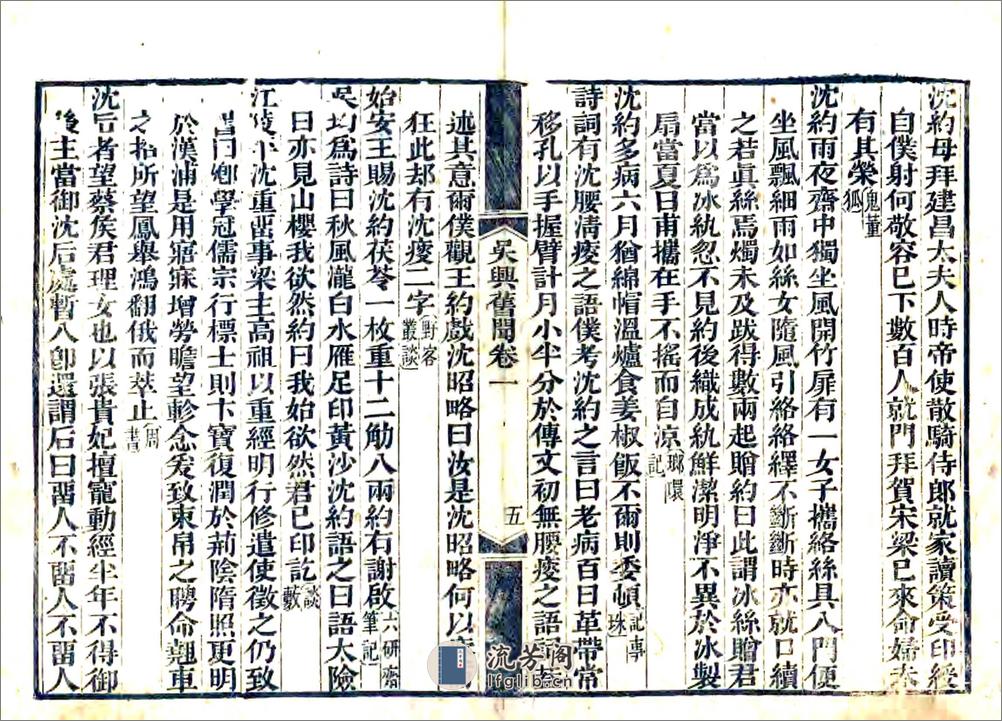 沈約母拜建昌太夫人時帝使散騎侍郎就家讀策受印綬
自僕射何敬容已下數百人就門拜賀宋梁已來命婦未
有其榮鬼董狐
沈約雨夜齋中獨坐風開竹扉有一女子攜絡絲具入門便
坐風飄細雨如絲女隨風引絡絡繹不斷斷時亦就口續
之若眞絲焉燭未及跋得數兩起贈約曰此謂冰絲贈君
當以爲冰紈忽不見約後織成紈鮮潔明淨不異於冰製
扇當夏日甫攜在手不搖而自涼瑯嬛記
沈約多病六月猶綿帽溫爐食姜椒飯不爾則委頓記事珠
詩詞有沈腰淸瘦之語僕考沈約之言曰老病百日革帶常
移孔以手握臂計月小半分於傳文初無腰瘦之語
述其意爾僕觀王約戲沈昭略曰汝是沈昭略何以
狂此却有沈瘦二字野客叢談
始安王賜沈約茯苓一枚重十二觔八兩約有謝啟六研齋筆記
吳均爲詩曰秋風瀧白水雁足印黃沙沈約語之曰語太險
曰亦見山櫻我欲然約曰我始欲然君已印訖談藪
江陵平沈重畱事梁主高祖以重經明行修遣使徵之仍致
書曰卿學冠儒宗行標士則卞寶復潤於荊陰隋照更明
於漢浦是用寤寐增勞瞻望軫念爰致束帛之聘命翹車
之招所望鳳舉鴻翻俄而萃止周書
沈后者望蔡侯君理女也以張貴妃擅寵動經半年不得御
後主當御沈后處暫入卽還謂后曰畱人不畱人不畱人
吳興舊聞卷一
五
流芳阁
lfglib.cn